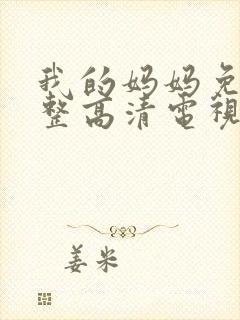 我的妈妈免
整高清電視
姜米